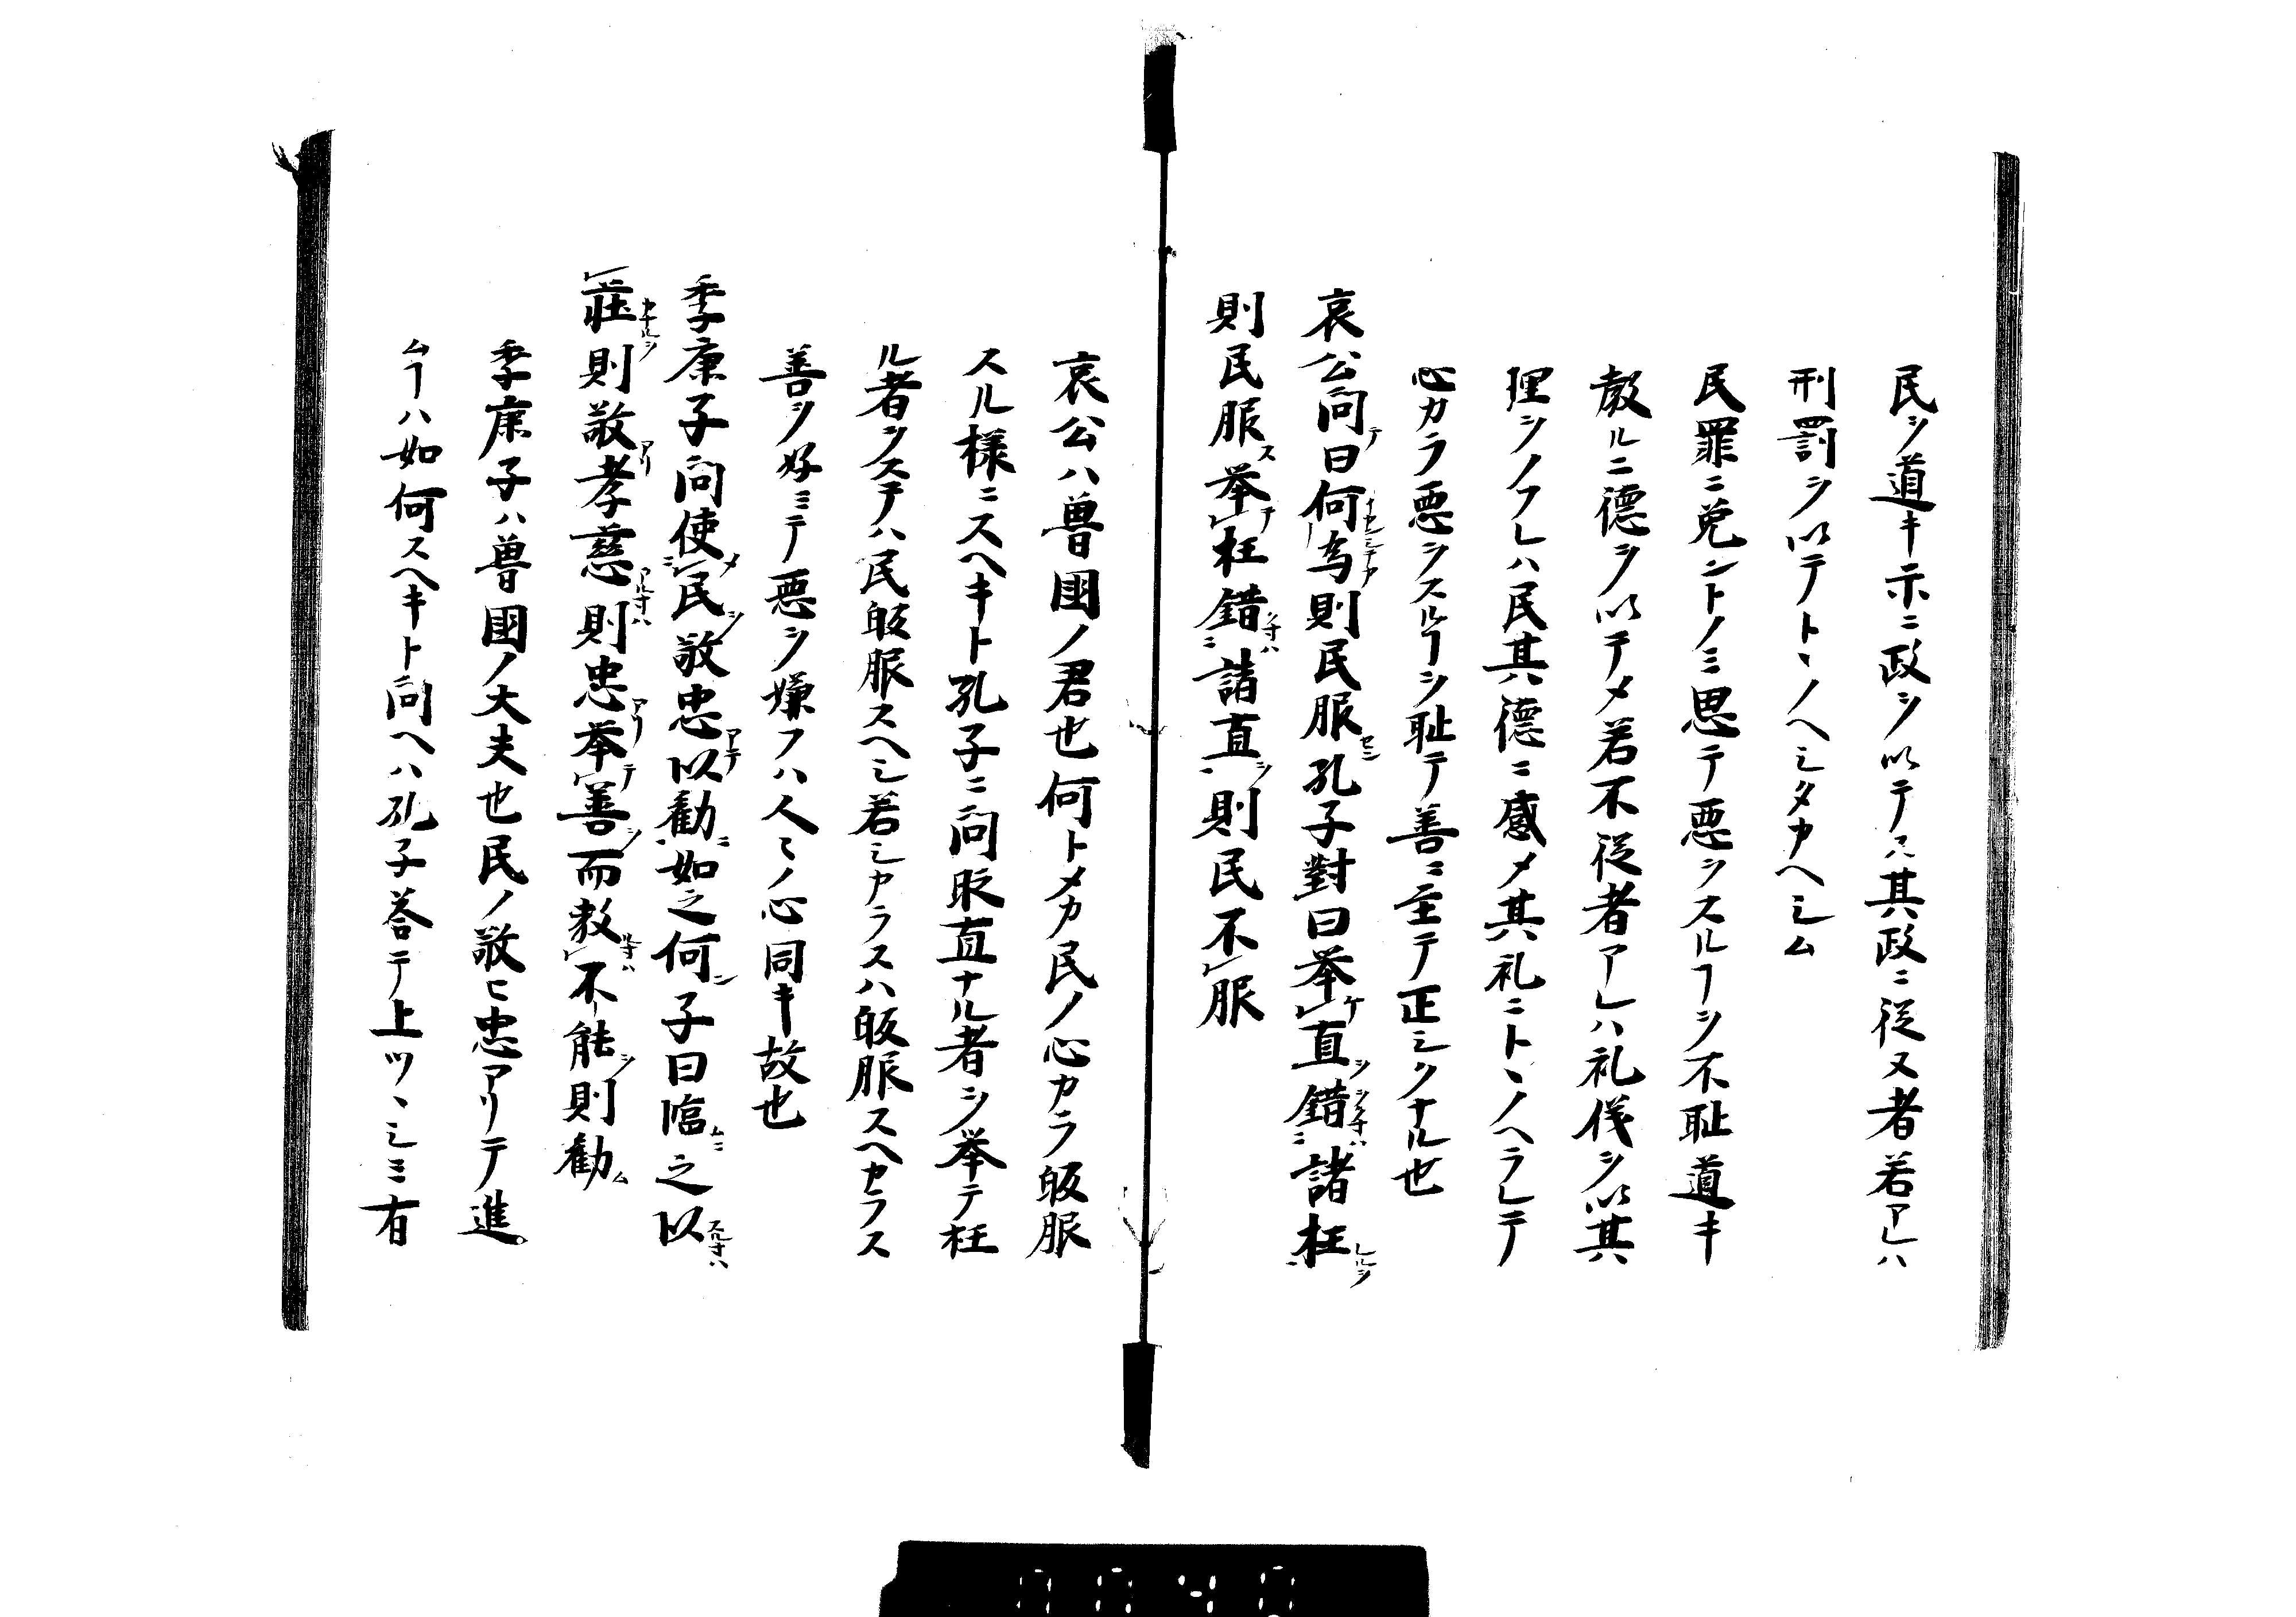 民ヲ道キ示ニ政ヲ以テス其政ニ従又者若アレハ
刑罰ヲ以テトヽノヘシタカヘシム
民罪ニ免ントノミ思テ悪ヲスルヿヲ不耻道キ
教ルニ德ヲ以テメ若不從者アレハ礼儀ヲ以其
理ヲノフレハ民其德ニ感メ其礼ニトヽノヘラレテ
心カラ悪ヲスルヿヲ耻テ善ニ至テ正シクナル也
哀公問テ曰何為則民服セン孔子對曰挙ケ直ヲ錯諸枉
則民服ス挙テ枉錯諸直ヲ則民不服
哀公ハ魯國ノ君也何トメカ民ノ心カラ皈服
スル様ニスヘキト孔子ニ問玉直ナル者ヲ挙テ枉
ル者ヲステハ民皈服スヘシ若シカラスハ皈服スヘカラス
善ヲ好ミテ悪ヲ嫌フハ人〻ノ心同キ故也
季康子問使メ民ヲ敬忠アテ以勧ニ如之何ン子曰臨ムニ之以
荘則敬アリ孝慈則忠アリ挙テ善ヲ而教不能ヲ則勧ム
季康子ハ魯國ノ大夫也民ノ敬ヒ忠アリテ進
ムヿハ如何スヘキト問ヘハ孔子答テ上ツヽシミ有